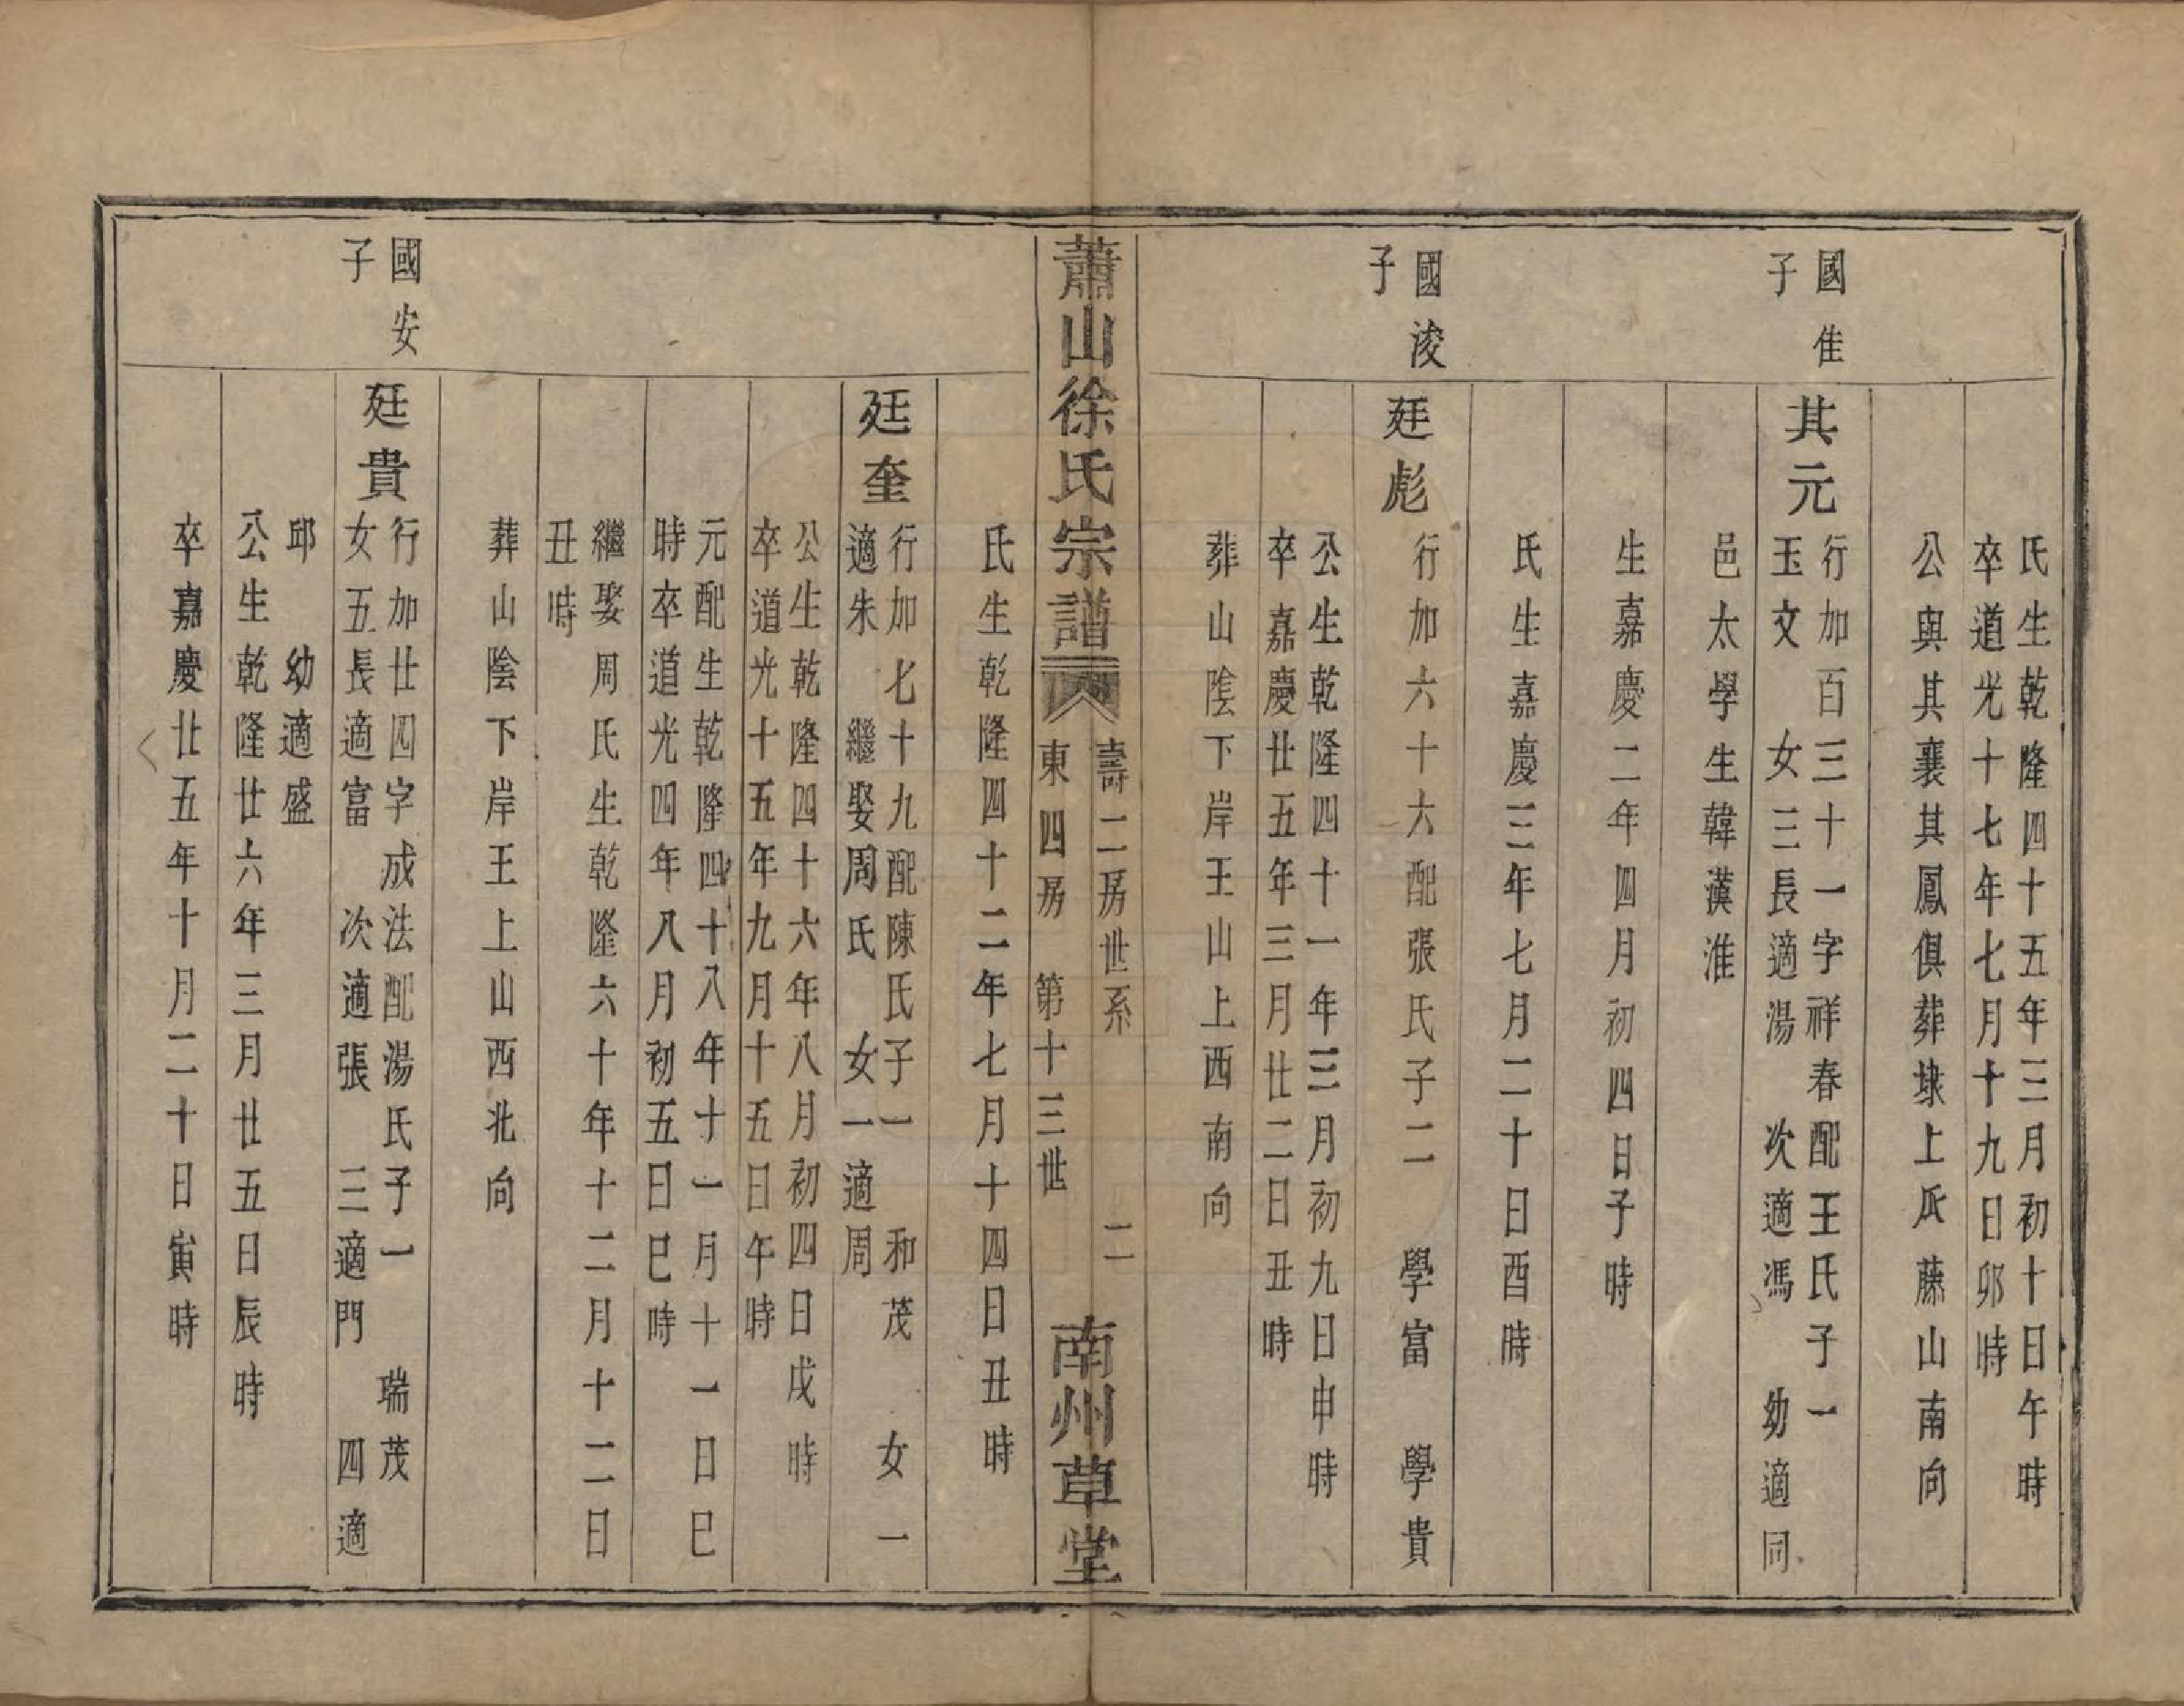 氏生乾隆四十五年三月初十日午時
卒道光十七年七月十九日卯時
公與其襄其鳳俱葬埭上爪藤山南向
國隹
子
其元
行加百三十一字祥春配王氏子一
玉文 女三長適湯 次適馮 幼適同
邑太學生韓漢淮
生嘉慶二年四月初四日子時
氏生嘉慶三年七月二十日酉時
國浚
子
廷彪
行加六十六配張氏子二 學富 學貴
公生乾隆四十一年三月初九日申時
卒嘉慶廿五年三月廿二日丑時
葬山陰下岸王山上西南向
蕭山徐氏宗譜
壽二房世系 二
東四房 第十三世
南州草堂
氏生乾隆四十二年七月十四日丑時
廷奎
行加七十九配陳氏子一 和茂 女一
適朱 繼娶周氏 女一適周
公生乾隆四十六年八月初四日戌時
卒道光十五年九月十五日午時
元配生乾隆四十八年十一月十一日巳
時卒道光四年八月初五日巳時
繼娶周氏生乾隆六十年十二月十二日
丑時
葬山陰下岸王上山西北向
國安
子
廷貴
行加廿四字成法配湯氏子一 瑞茂
女五長適富 次適張 三適門 四適
邱 幼適盛
公生乾隆廿六年三月廿五日辰時
卒嘉慶廿五年十月二十日寅時